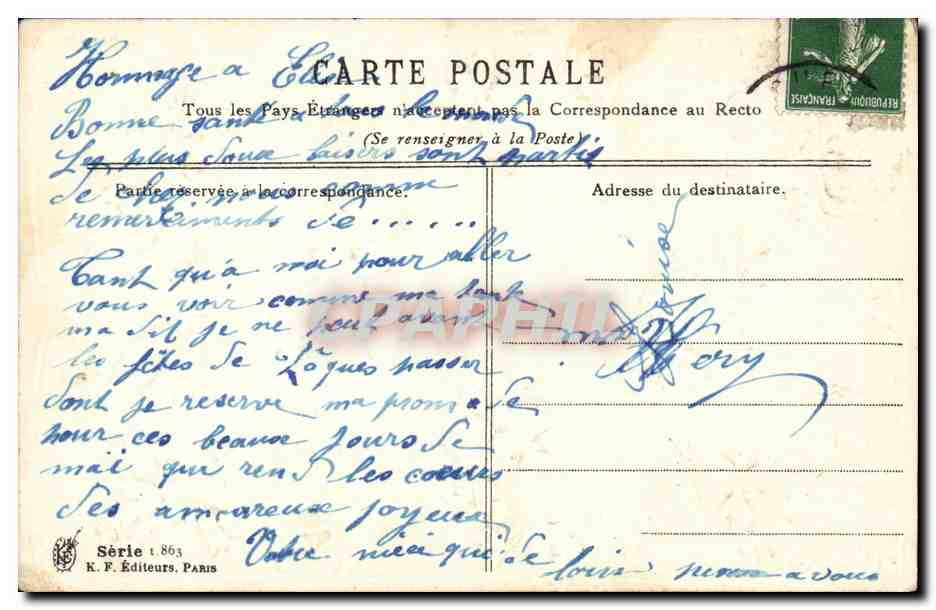 Hommage a Elle
CARTE POSTALE
Tous les Pays Étrangers n'acceptent pas la Correspondance au Recto
(Se renseigner à la Poste)
Bonne santé a
Les plus doux baisers sont partis
Partie réservée à la correspondance.
de chez nous comme
remerciements de . . . . . .
Tant qu'a moi pour aller
vous voir comme ma tant
ma dit je ne peut avant
les fêtes de Pâques passer
dont je reserve ma promade
pour ces beaux jours de
mai qui rend les coeurs
des amoureux joyeux
Votre nièce qui de
loin pense a vous
Adresse du destinataire.
REPUBLIQUE FRANÇAISE
CPAPHIL
Série 1.863
K. F. Éditeurs, PARIS